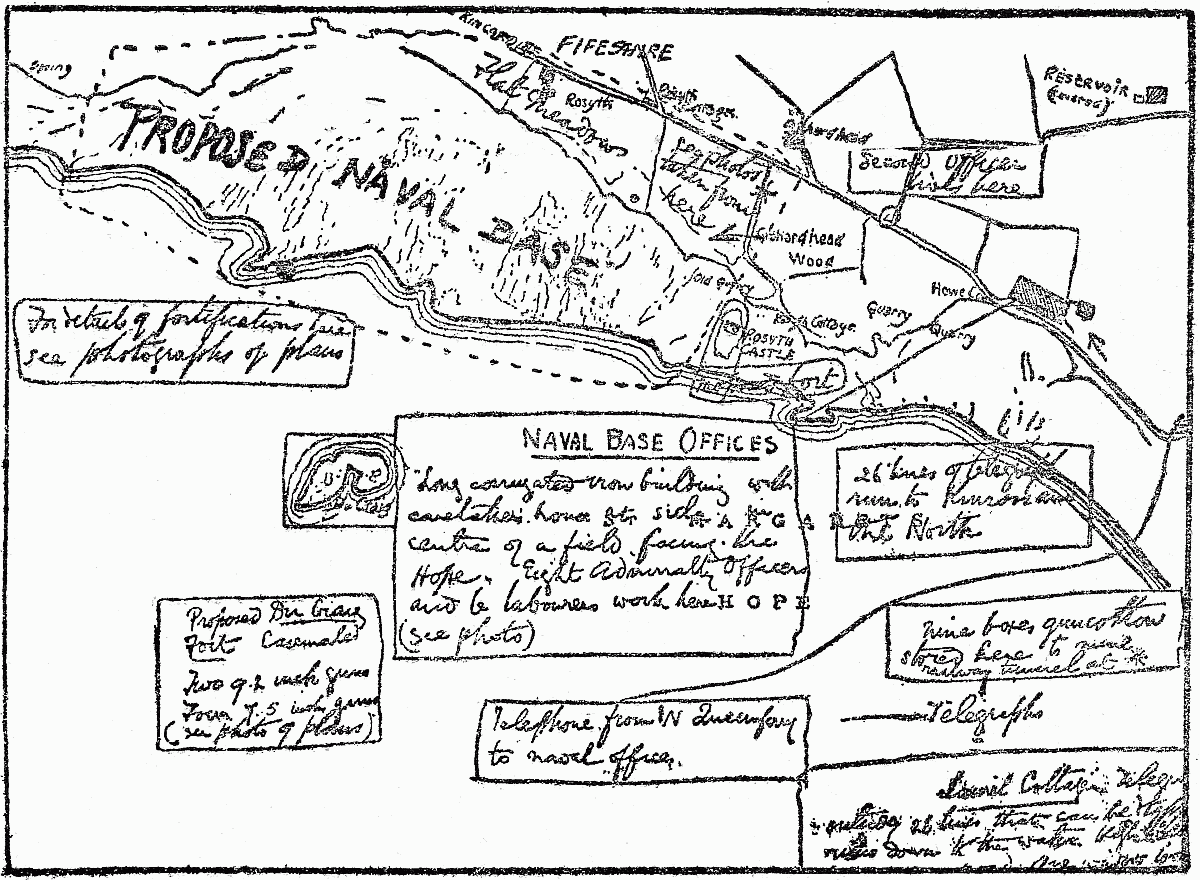 Spring
FIFESHIRE
RESERVOIR
PROPOSED NAVAL BASE
Flat meadows
Rosyth
Rosyth
Orchardhead
See photos
taken from
here
Second Officer
lives here
Orchardhead
Wood
Quarry
Quarry
Rosyth Cottage
ROSYTH
CASTLE
For details of fortifications here
see photographs of plans
NAVAL BASE OFFICES
Long corrugated iron building with
caretakers house at side
centre of a field facing the
Hope. Eight Admiralty Officers
and 6 labourers work here
(see photo)
MARGARETS
HOPE
26 lines of telegraph
run to Kinross and
the North
Proposed
Fort Casemated
Two 9.2 inch guns
Four 7.5 inch guns
(see photo of plans)
Nine boxes guncotton
stored here to
railway tunnel at the
Telephone from N Queensferry
to naval offices.
Telegraphs
Cottage
26 lines that can be
down to the water